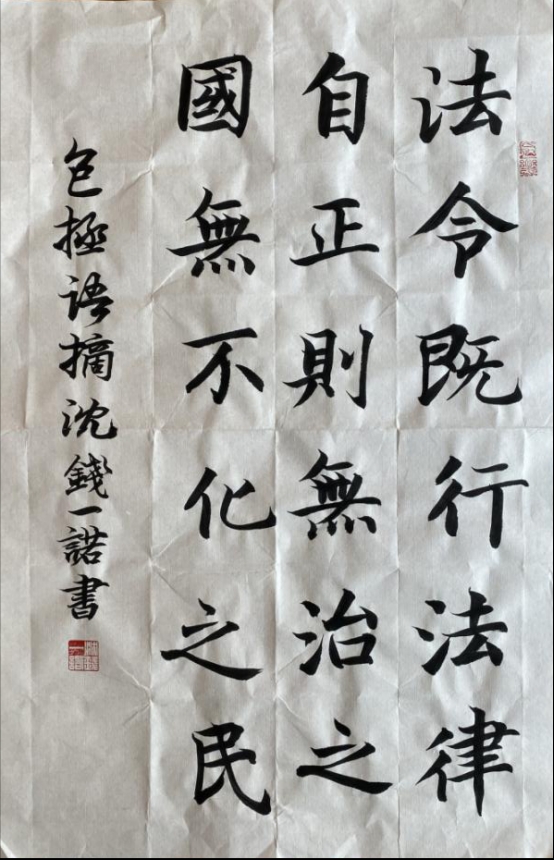 法令既行法律
自正則無治之
國無不化之民
包拯语摘沈錢一諾書